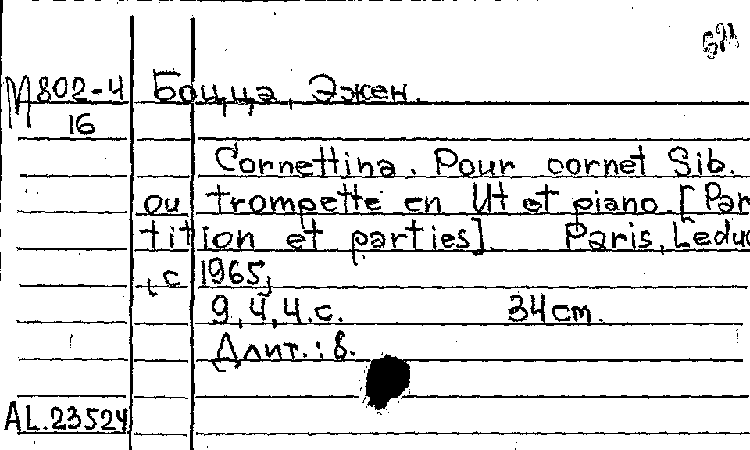 М802-4 Боцца, Эжен.
16
Cornettina. Pour cornet Sib.
ou trompette en Ut et piano [Par
tition et parties]. Paris, Leduc
, c 1965,
9, 4, 4. c. 34 cm.
Длит.: 8.
AL.23524